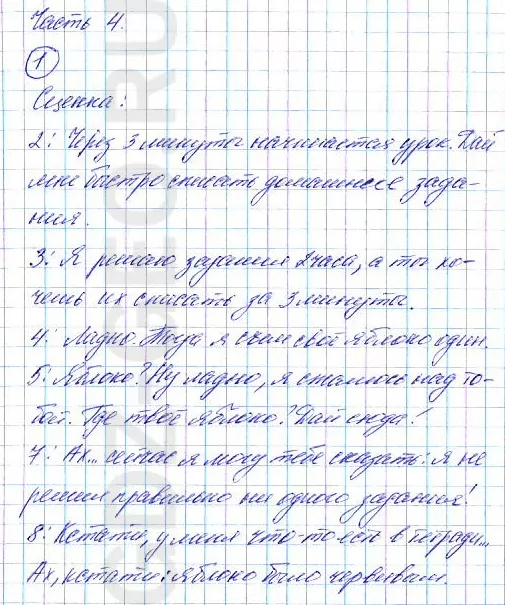 Часть 4.
1
Сценка:
2: Через 3 минуты начинается урок. Дай
мне быстро списать домашнее зада-
ния.
3: Я решаю задания 2 часа, а ты хо-
чешь их списать за 3 минуты.
4: Ладно. Тогда я съем своё яблоко один.
5: Яблоко? Ну ладно, я сжалюсь над то-
бой. Где твоё яблоко? Дай сюда!
7: Ах... сейчас я могу тебе сказать: я не
решил правильно ни одного задания!
8: Кстати, у меня что-то есть в тетради...
Ах, кстати: яблоко было червивым.